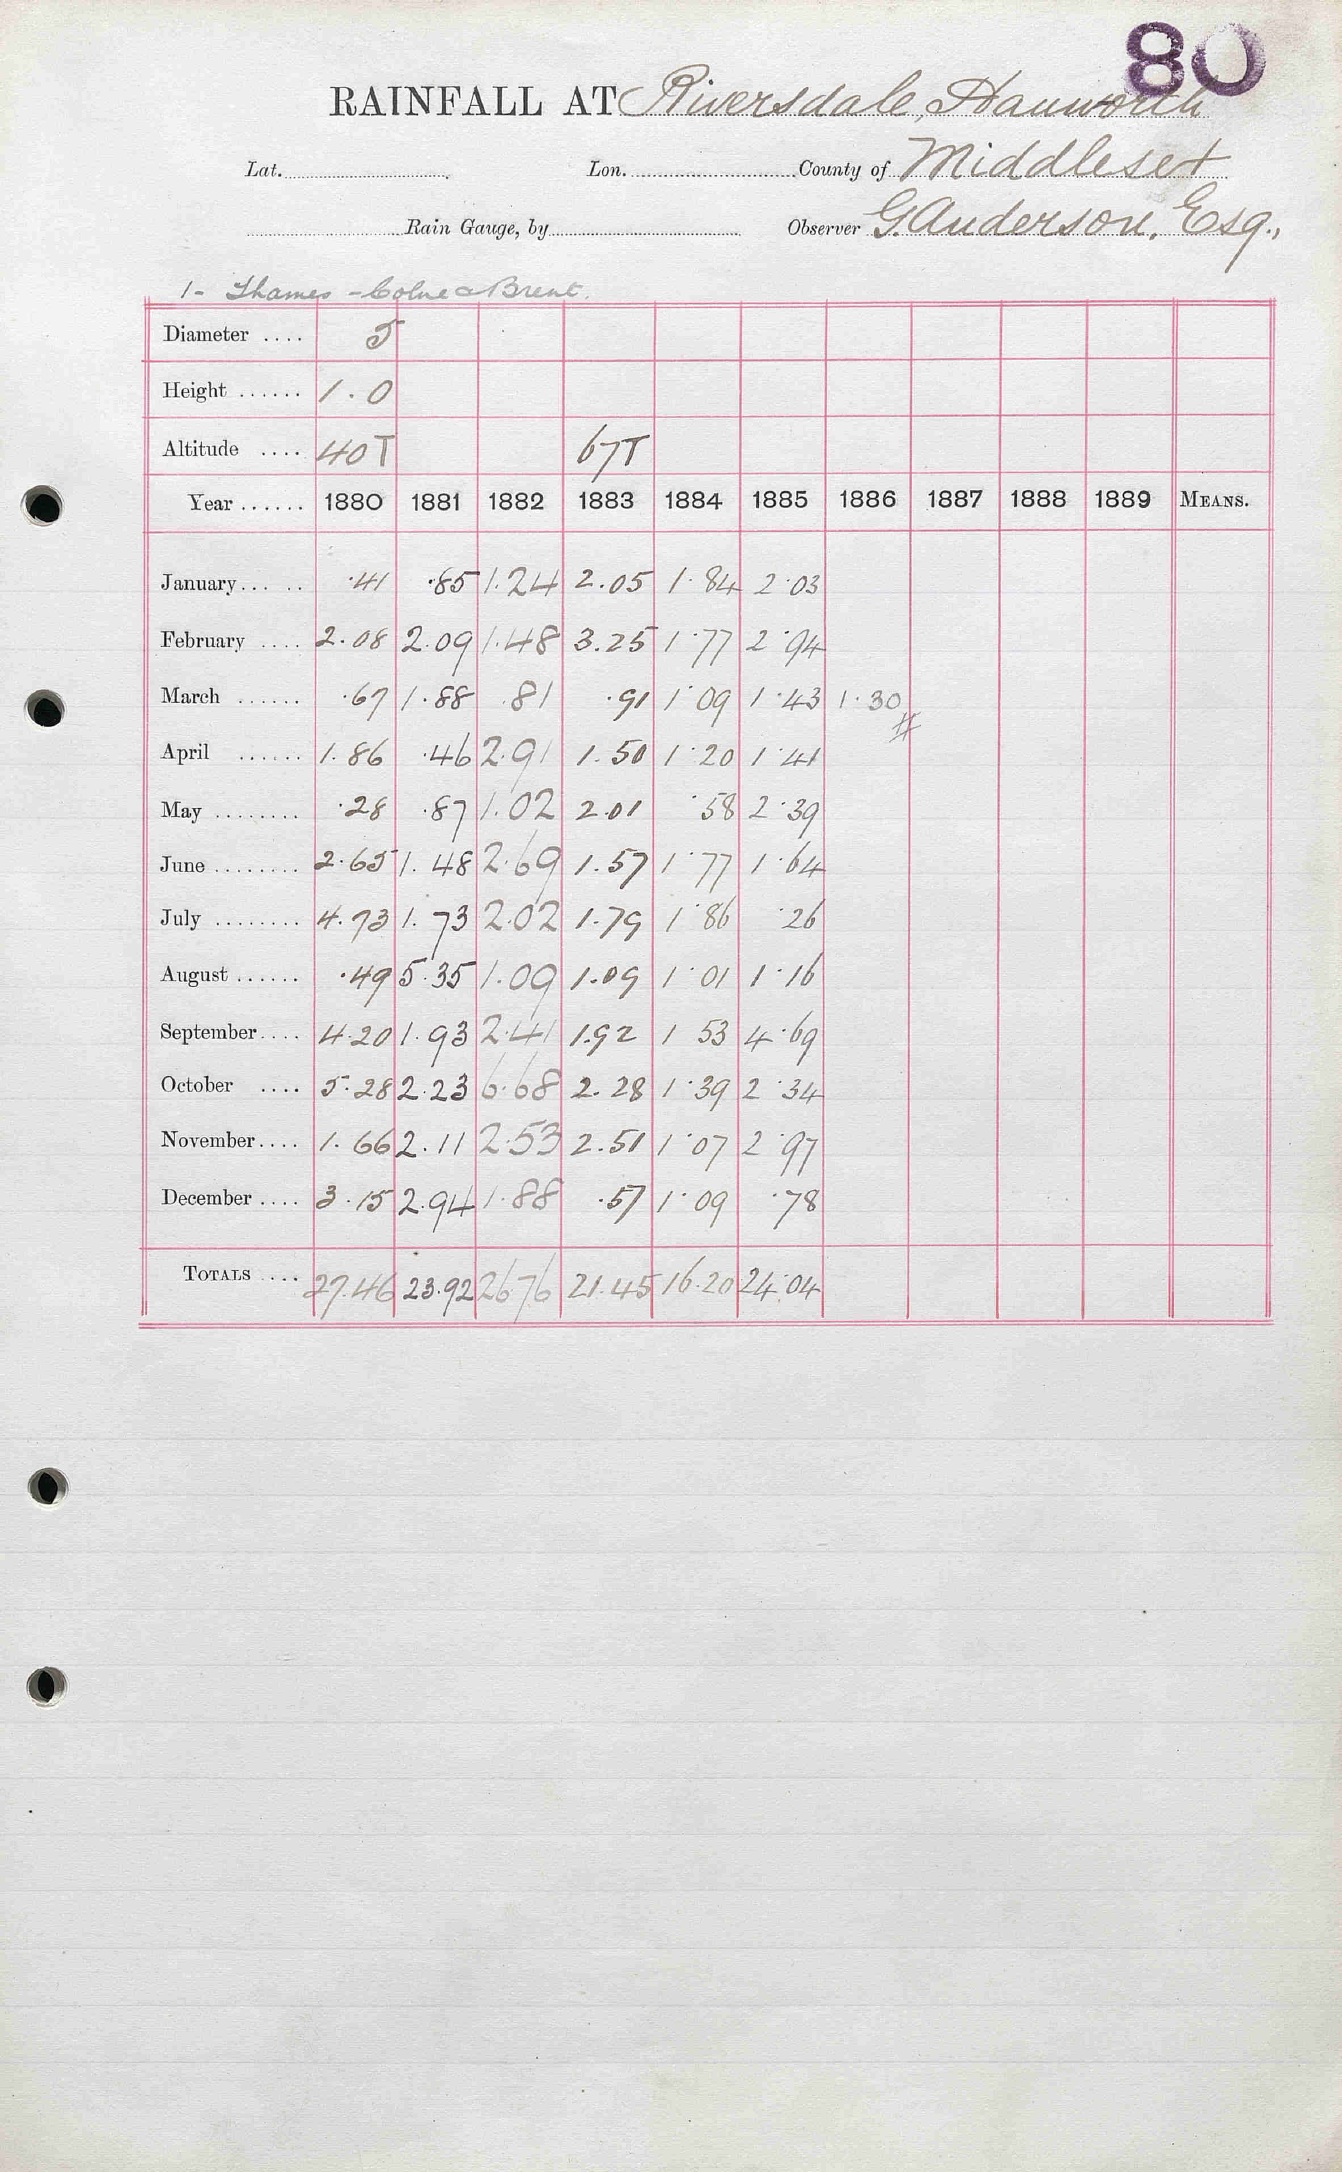 80
RAINFALL AT Riversdale, Hanworth
Lat. Lon. County of Middlesex
Rain Gauge, by Observer G. Anderson, Esq.,
1- Thames - Colne & Brent.
Diameter .... 5
Height ...... 1.0
Altitude .... 40T 67T
Year ...... 1880 1881 1882 1883 1884 1885 1886 1887 1888 1889 MEANS.
January ... .. .41 .85 1.24 2.05 1.84 2.03
February .... 2.08 2.09 1.48 3.25 1.77 2.94
March ...... .67 1.88 .81 .91 1.09 1.43 1.30 #
April ...... 1.86 .46 2.91 1.50 1.20 1.41
May ........ .28 .87 1.02 2.01 .58 2.39
June ........ 2.65 1.48 2.69 1.57 1.77 1.64
July ........ 4.73 1.73 2.02 1.79 1.86 .26
August ...... .49 5.35 1.09 1.09 1.01 1.16
September .... 4.20 1.93 2.41 1.92 1 53 4.69
October .... 5.28 2.23 6.68 2.28 1.39 2.34
November .... 1.66 2.11 2.53 2.51 1.07 2.97
December .... 3.15 2.94 1.88 .57 1.09 .78
TOTALS .... 27.46 23.92 26.76 21.45 16.20 24.04